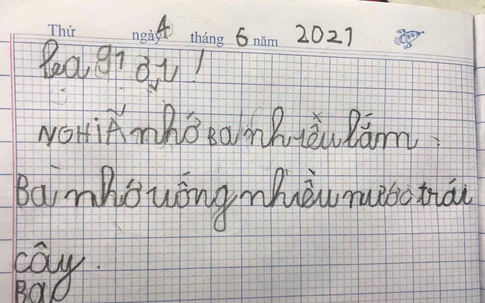 Thứ ngày 4 tháng 6 năm 2021
ơi!
NGHĨA nhớ Ba nhiều lắm.
Ba nhớ uống nhiều nước trái
cây.